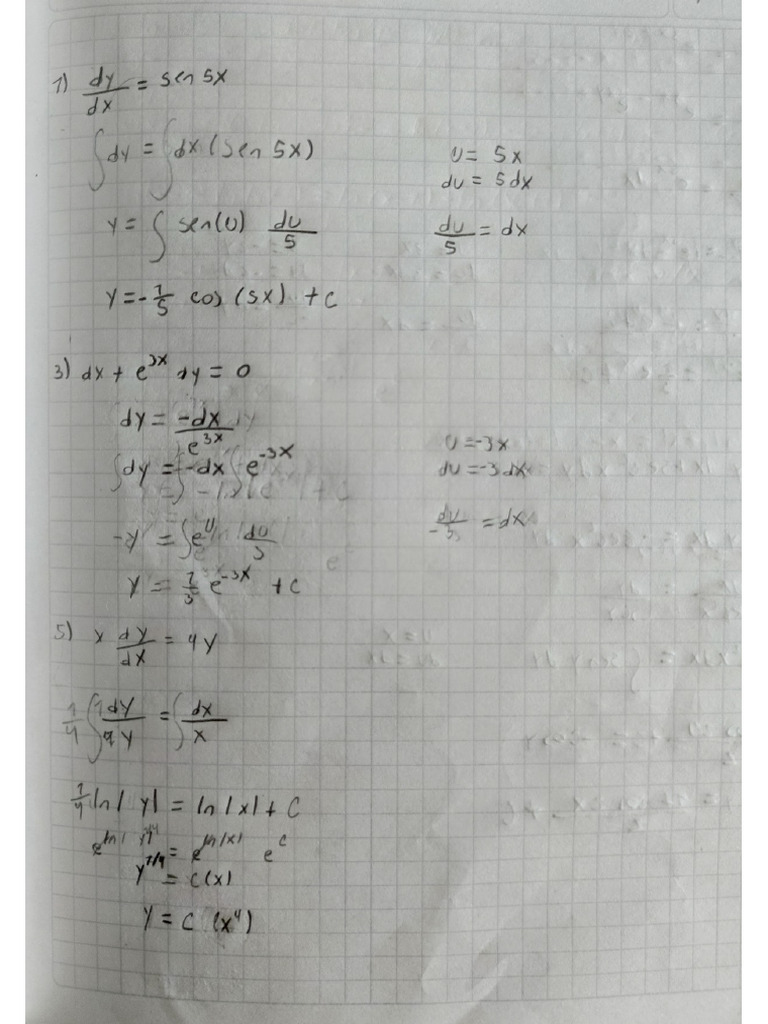 1) dy/dx = sen 5x
∫dy = ∫dx (sen 5x)
u = 5x
du = 5dx
y = ∫ sen(u) du/5
du/5 = dx
y = -1/5 cos (5x) + c
3) dx + e^3x dy = 0
dy = -dx/e^3x
u = -3x
∫dy = ∫-dx e^-3x
du = -3dx
-y = ∫e^u du/3
du/-3 = dx
y = 1/3 e^-3x + c
5) x dy/dx = 4y
1/4 ∫ dy/y = ∫ dx/x
1/4 ln|y| = ln|x| + c
e^ln|y|^1/4 = e^ln|x| e^c
y^1/4 = c(x)
y = c (x^4)